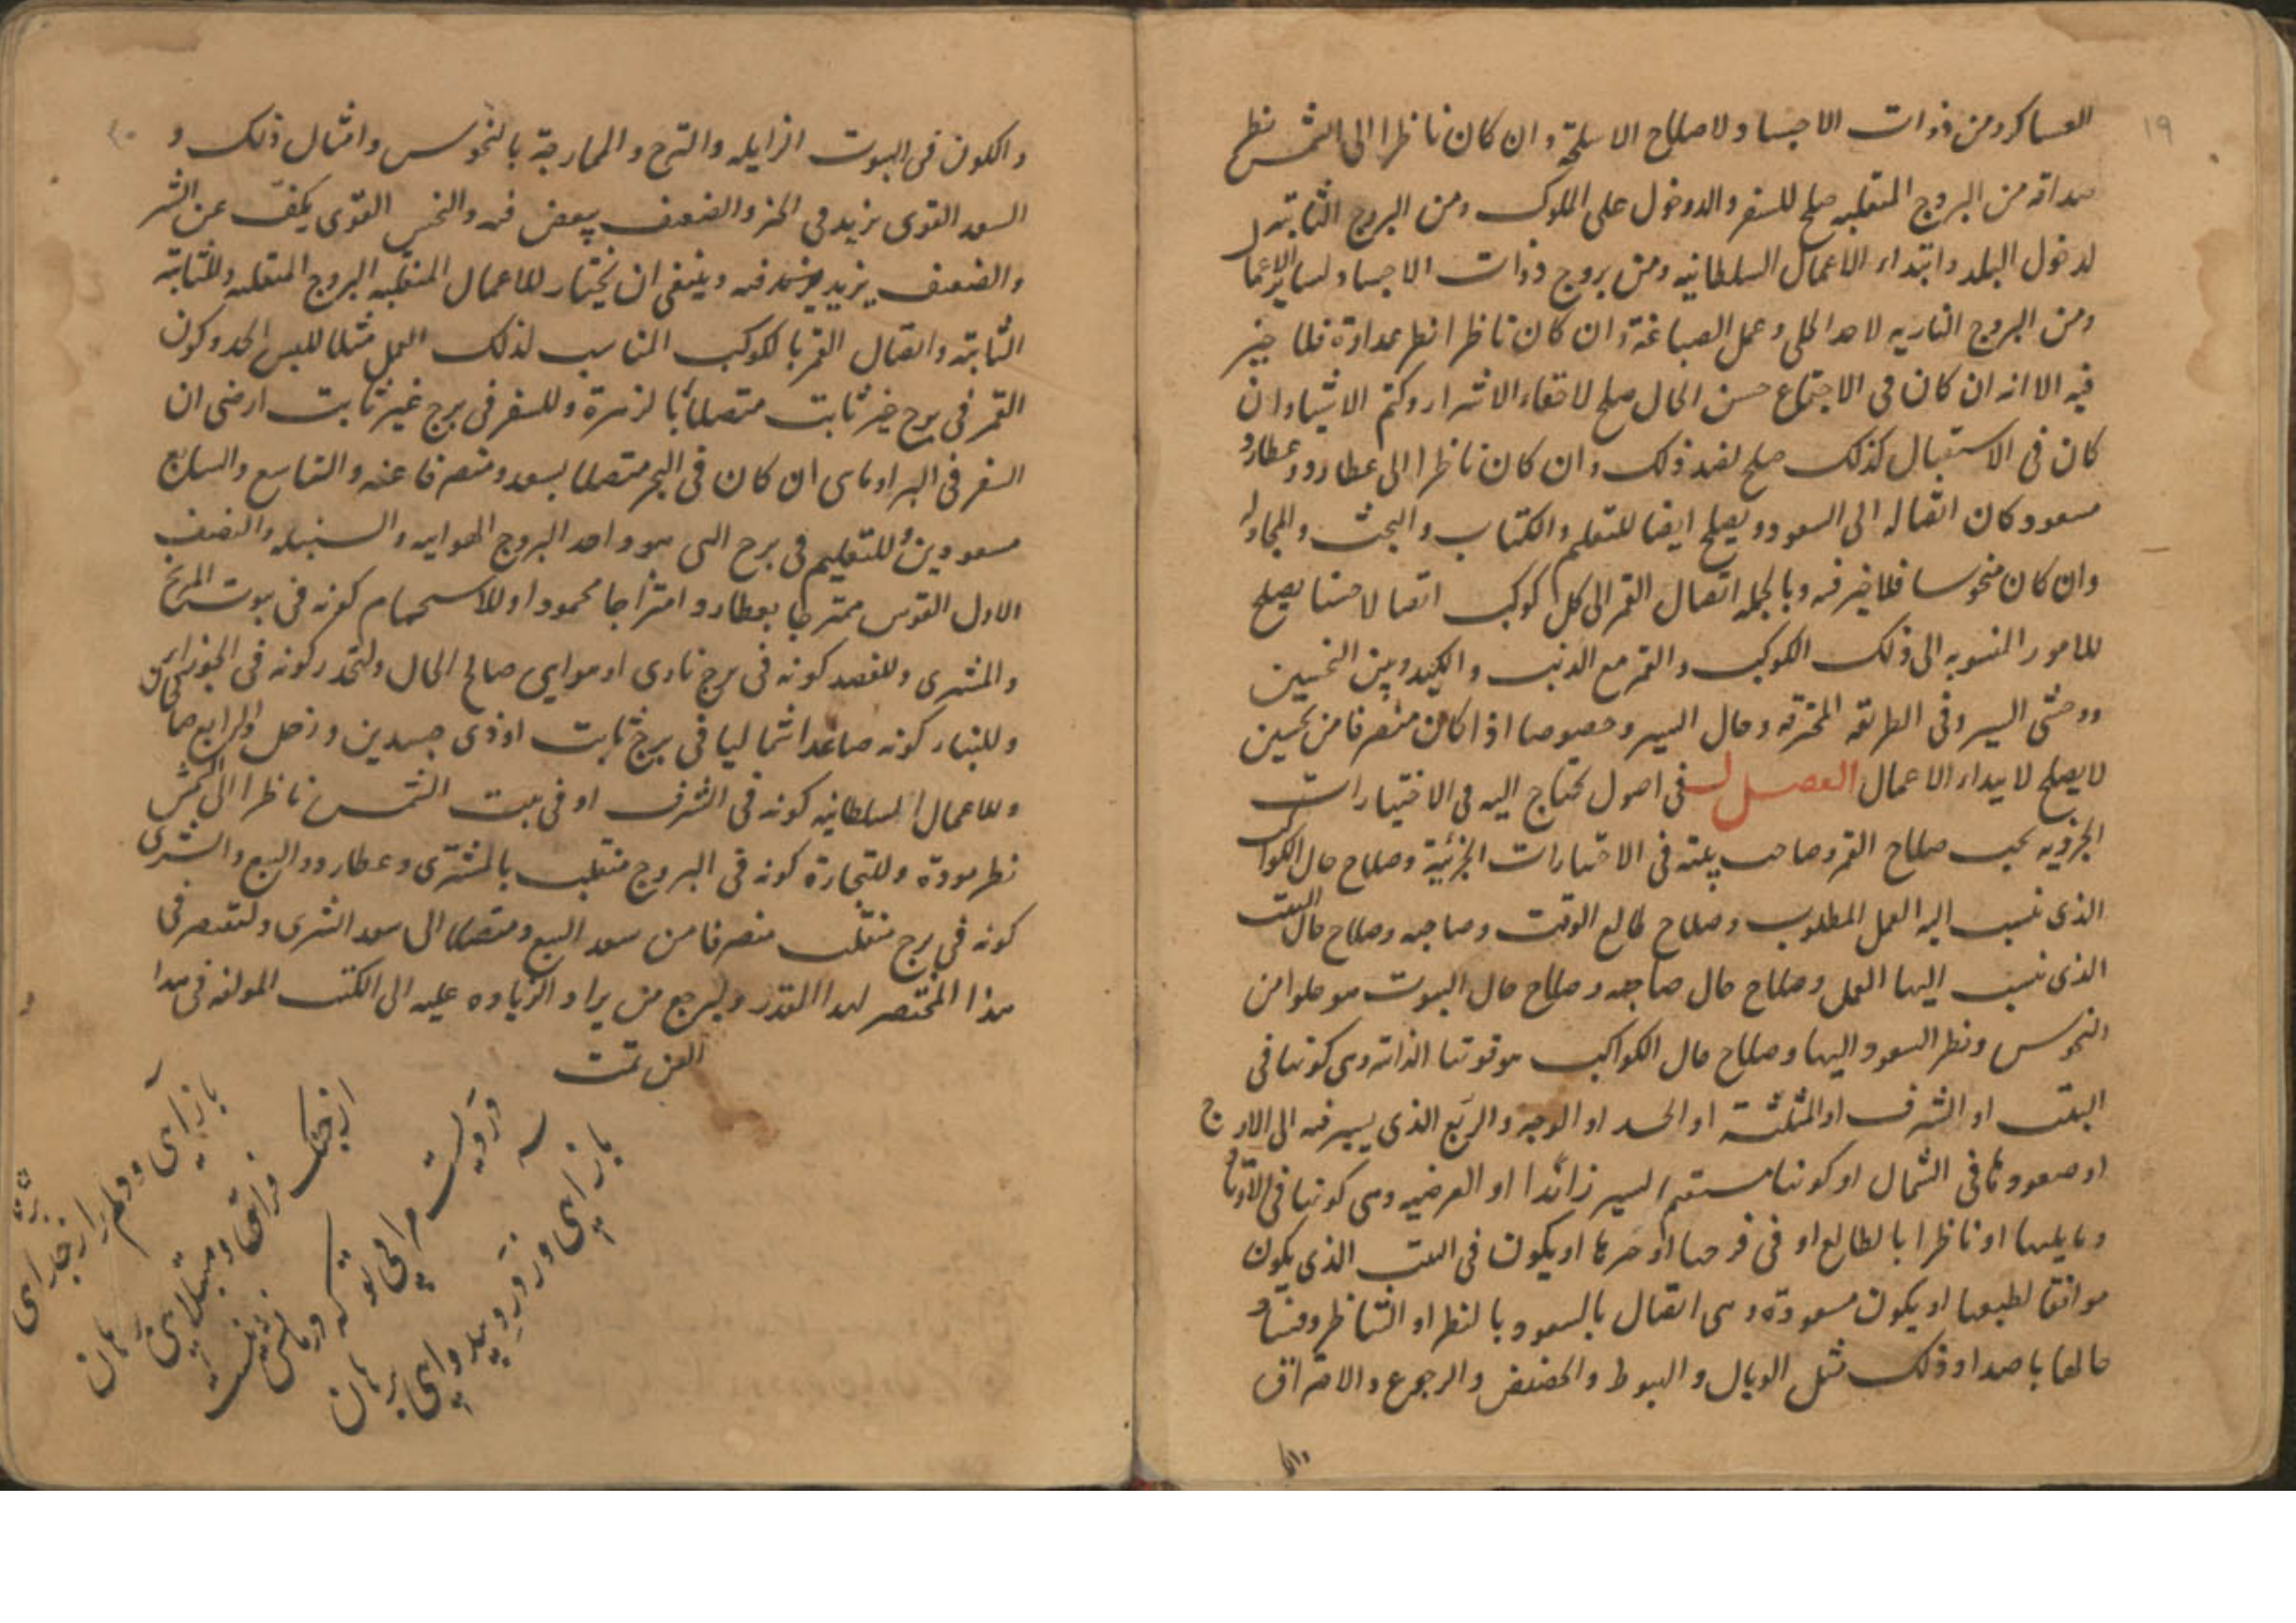 ١٩
العساكر ومن ذوات الاجساد لاصلاح الاسلحة وان كان ناظرا الى الشمس نظر
صداقة من البروج المنقلبه صلح للسفر والدخول على الملوك ومن البروج الثابته
لدخول البلد وابتداء الاعمال السلطانيه ومن بروج ذوات الاجساد لساير الاعمال
ومن البروج الناريه وعمل الصياغة وان كان ناظرا نظر عداوة فلا خير
فيه الا انه ان كان فى الاجتماع حسن الحال صلح لاخفاء الاسرار وكتم الاشياء وان
كان فى الاستقبال كذلك صلح لضد ذلك وان كان ناظرا الى عطارد وعطارد
مسعود كان اتصاله الى السعود ويصلح ايضا للتعلم والكتاب والبحث والمجادله
وان كان منحوسا فلا خير فيه وبالجمله اتصال القمر الى كل كوكب اتصالا حسنا يصلح
للامور المنسوبه الى ذلك الكوكب والقمر مع الذنب والكيد وبين النحسين
ووحشى السير وفى الطريقه المحترقه وحال السير وخصوصا اذا كان منصرفا من نحسين
لا يصلح لابتداء الاعمال الفصل ل فى اصول يحتاج اليه فى الاختيارات
الجزويه يجب صلاح القمر وصاحب بيته فى الاختيارات الجزئية وصلاح حال الكواكب
الذى ينسب اليه العمل المطلوب وصلاح طالع الوقت وصاحبه وصلاح حال البيت
الذى ينسب اليها العمل وصلاح حال صاحبه وصلاح حال البيوت هو خلوا من
النحوس ونظر السعود اليها وصلاح حال الكواكب هو قوتها الذاتيه وهى كونها فى
البيت او الشرف او المثلثة او الحد او الوجه والربع الذى يسير فيه الى الاوج
او صعودها فى الشمال او كونها مستقيم السير زائدا او العرضيه وهى كونها فى الاوتاد
وما يليها او ناظرا بالطالع او فى فرحها او حيزها او يكون فى البيت الذى يكون
موافقا لطبعها او يكون مسعودة وهى اتصال بالسعود بالنظر او التناظر وفساد
حالها باضداد ذلك مثل الوبال والهبوط والحضيض والرجوع والاحتراق
والكون فى البيوت الزايله والترح والممازجة بالنحوس وامثال ذلك و
السعد القوى يزيد فى الخير والضعيف ينقص فيه والنحس القوى يكف عن الشر
والضعيف يزيد فيه وينبغى ان يختار للاعمال المنقلبه البروج المنقلبه وللثابته
الثابته واتصال القمر بالكوكب المناسب لذلك العمل مثلا للبس الجديد كون
القمر فى برج غير ثابت متصلا بالزهرة وللسفر فى برج غير ثابت ارضى ان
السفر فى البر او مائى ان كان فى البحر متصلا بسعد ومنصرفا عنه والتاسع والسابع
مسعودين وللتعليم فى برج التى هو واحد البروج الهوايه والسنبله والنصف
الاول القوس ممتزجا بعطارد امتزاجا محمودا وللاستحمام كونه فى بيوت المريخ
والمشترى وللفصد كونه فى برج نارى او هوايى صالح الحال ولتحذر كونه فى الجوزاء
وللبناء كونه صاعدا شماليا فى برج ثابت او ذى جسدين وزحل والرابع صالحا
وللاعمال السلطانيه كونه فى الشرف او فى بيت الشمس ناظرا الى الشمس
نظر مودة وللتجارة كونه فى البروج منقلب بالمشترى وعطارد والبيع والشرى
كونه فى برج منقلب منصرفا من سعد البيع ومتصلا الى سعد الشرى ولنقتصر فى
هذا المختصر لهذا القدر وليرجع من يراد الزياده عليه الى الكتب المولفه فى هذا
الفن تمت
باز آى و دلم را
از چنگ فراق و مبتلايى برهان
درديست مرا بى تو كه درمانش نيست
باز آى و ز درد بيدوايى برهان